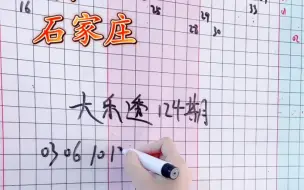 16 29 33
28 30
石家庄
大乐透124期
03 06 10 1